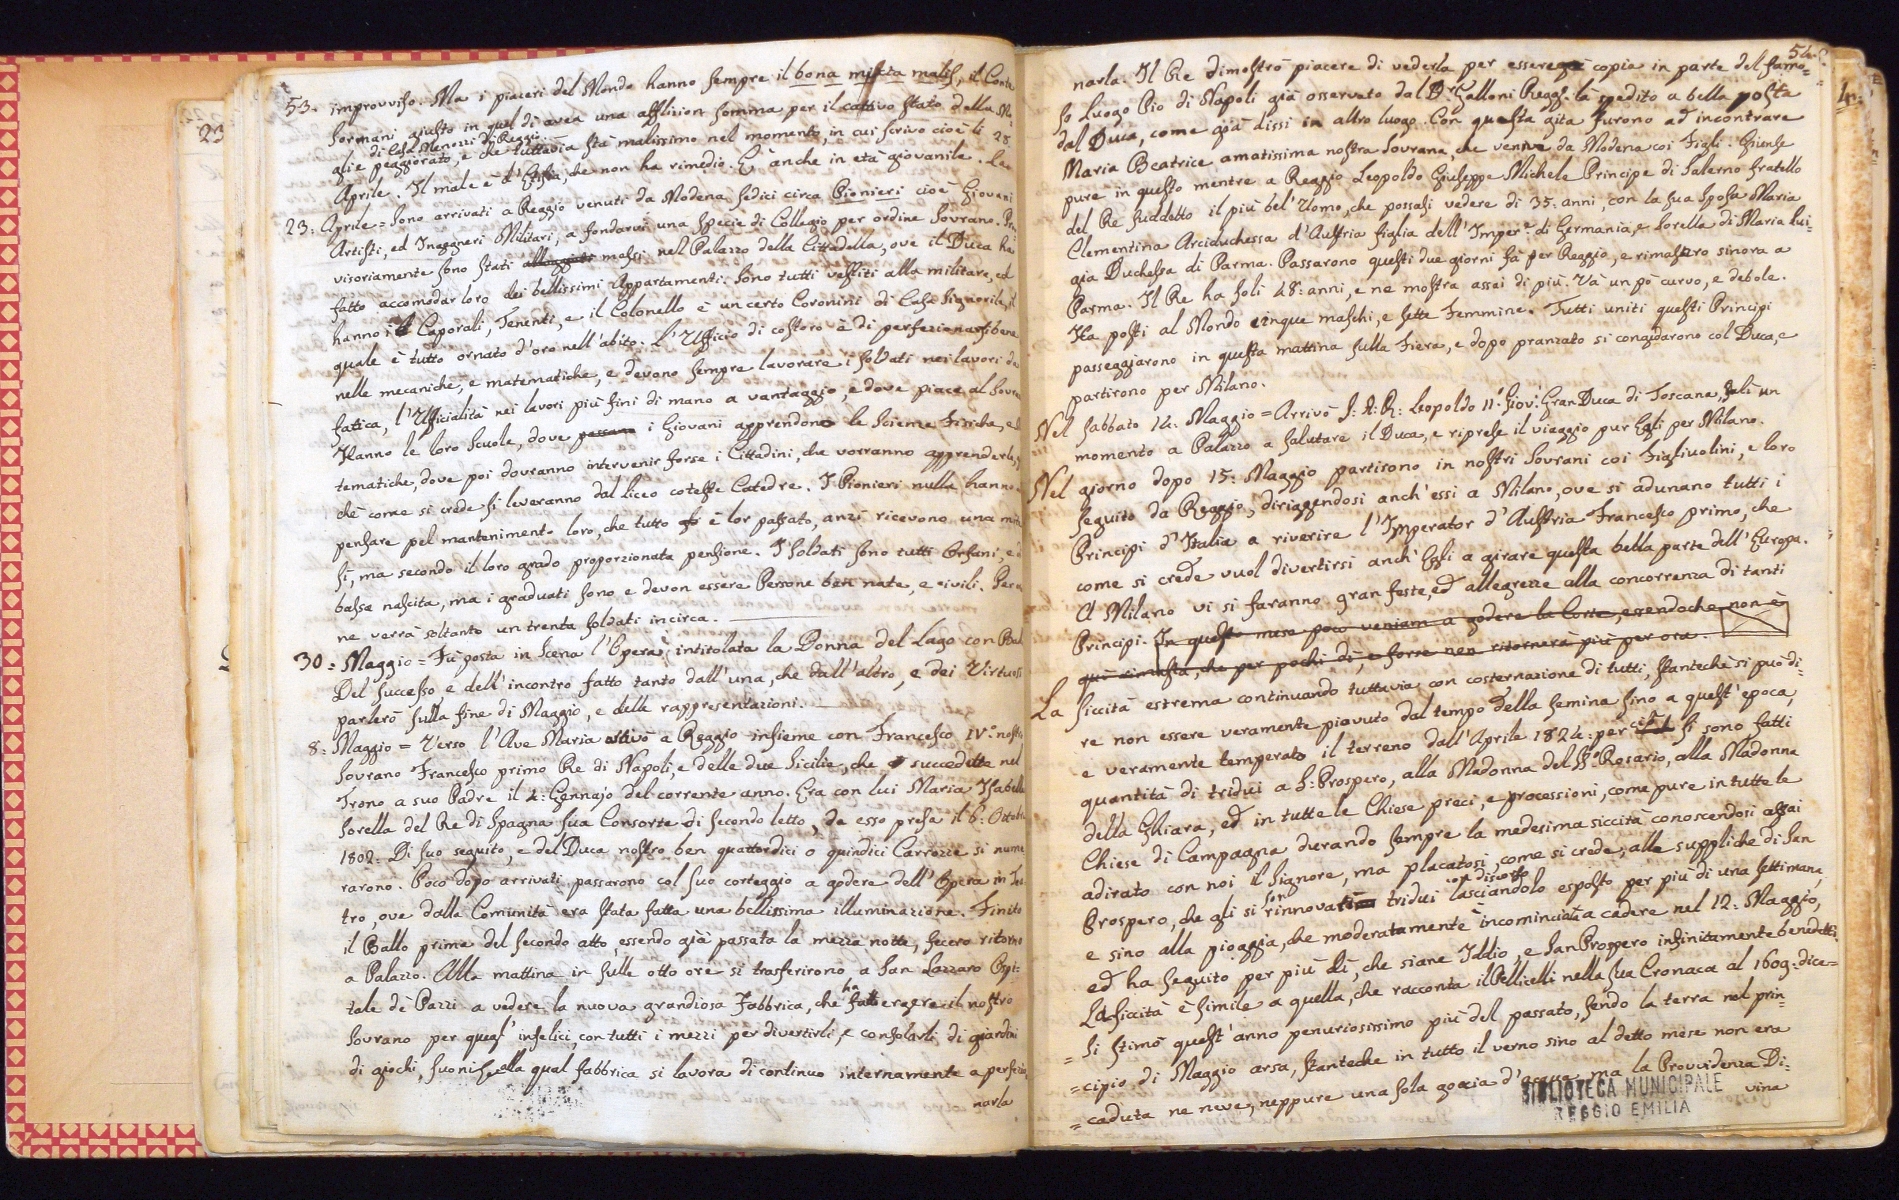 53. improvviso. Ma i piaceri del Mondo hanno sempre il bona mixta malis, il Conte
Sormani giusto in quel dì avea una afflizion somma per il cattivo stato della Mo:
di Casa Menozzi di Reggio.
glie peggiorato, e che tuttavia sta malissimo nel momento, in cui scrivo cioè li 28.
Aprile. Il male è d'Etisia, che non ha rimedio. E anche in età giovanile.
23: Aprile = Sono arrivati a Reggio venuti da Modena sedici circa Pionieri cioè Giovani
Artisti, ed Ingegneri Militari, a fondarvi una specie di Collegio per ordine Sovrano. Prov
visoriamente sono stati alloggiati messi nel Palazzo della Cittadella, ove il Duca ha
fatto accomodar loro dei bellissimi Appartamenti. Sono tutti vestiti alla militare, ed
hanno i Caporali, Tenenti, e il Colonello è un certo Coronini di Casa Signorile, il
quale è tutto ornato d'oro nell'abito. L'Ufficio di costoro è di perfezionarsi bene
nelle mecaniche, e matematiche, e devono sempre lavorare i soldati nei lavori di
fatica, l'Ufficialità nei lavori più fini di mano a vantaggio, e dove piace al Sovra
Hanno le loro Scuole, dove i Giovani apprendono le Scienze Fisiche, e
tematiche, dove poi dovranno intervenir forse i Cittadini, che vorranno apprenderle,
chè come si crede si leveranno dal liceo coteste Catedre. I Pionieri nulla hanno
pensare pel mantenimento loro, che tutto è lor passato, anzi ricevono una
si, ma secondo il loro grado proporzionata pensione. I Soldati sono tutti Orfani, e
bassa nascita, ma i graduati sono e devon essere Persone ben nate, e civili. Per
ne verrà soltanto un trenta soldati incirca.
30: Maggio = Fù posta in Scena l'Opera, intitolata la Donna del Lago con Bal
Del successo e dell'incontro fatto tanto dall'una, che dall'altro, e dei Virtuosi
parlerò sulla fine di Maggio, e delle rappresentazioni.
8: Maggio = Verso l'Ave Maria arrivò a Reggio insieme con Francesco IV.o nostro
Sovrano Francesco primo Re di Napoli, e delle due Sicilie, che succedette nel
Trono a suo Padre il 4: Gennajo del corrente anno. Era con lui Maria Isabella
Sorella del Re di Spagna sua Consorte di secondo letto, da esso presa il 6: Ottobre
1802: Di suo seguito, e del Duca nostro ben quattordici o quindici Carrozze si nume
rarono. Poco dopo arrivati, passarono col suo corteggio a godere dell'Opera in Tea
tro, ove dalla Comunità era stata fatta una bellissima illuminazione. Finito
il Ballo prima del secondo atto essendo già passata la mezza notte, fecero ritorno
a Palazzo. Alla mattina in sulle otto ore si trasferirono a San Lazzaro Ospi:
tale de Pazzi a vedere la nuova grandiosa Fabbrica, che ha fatt ergere il nostro
Sovrano per quegl' infelici, con tutti i mezzi per divertirli, e consolarli, di giardini
di giochi, suoni alla qual fabbrica si lavora di continuo internamente a perfezio
narla
54.
narla. Il Re dimostrò piacere di vederla per essere copia in parte del famo=
so Luogo Pio di Napoli già osservato dal D.r Galloni Regg: là spedito a bella posta
dal Duca, come già dissi in altro luogo. Con questa gita furono ad incontrare
Maria Beatrice amatissima nostra Sovrana, che veniva da Modena coi Figli. Giunse
pure in questo mentre a Reggio Leopoldo Giuseppe Michele Principe di Salerno fratello
del Re suddetto il più bel'Uomo, che possasi vedere di 35. anni, con la sua sposa Maria
Clementina Arciduchessa d'Austria figlia dell'Imper.e di Germania, e Sorella di Maria Lui:
gia Duchessa di Parma. Passarono questi due giorni fà per Reggio, e rimastero sinora a
Parma. Il Re ha soli 48: anni, e ne mostra assai di più. Và un pò curvo, e debole.
Ha posti al Mondo cinque maschi, e sette Femmine. Tutti uniti questi Principi
passeggiarono in questa mattina sulla Fiera, e dopo pranzato si congedarono col Duca, e
partirono per Milano.
Nel sabbato 14. Maggio = Arrivò S: A: R: Leopoldo II.o Giov: GranDuca di Toscana, salì un
momento a Palazzo a salutare il Duca, e riprese il viaggio pur Egli per Milano.
Nel giorno dopo 15: Maggio partirono in nostri Sovrani coi Figliuolini, e loro
seguito da Reggio, diriggendosi anch'essi a Milano, ove si adunano tutti i
Principi d'Italia a riverire l'Imperator d'Austria Francesco primo, che
come si crede vuol divertirsi anch'Egli a girare questa bella parte dell'Europa.
A Milano vi si faranno gran feste, ed allegrezze alla concorrenza di tanti
Principi. In questo mese poco veniam a godere la Corte, essendoche non è
quì rimasta, che per pochi dì, e forse non ritornerà più per ora.
La siccità estrema continuando tuttavia con costernazione di tutti, stantechè si può di:
re non essere veramente piovuto dal tempo della semina sino a quest'epoca,
e veramente temperato il terreno dall'Aprile 1824: per ciò si sono fatti
quantità di tridui a S: Prospero, alla Madonna del SS.o Rosario, alla Madonna
della Ghiara, ed in tutte le Chiese preci, e processioni, come pure in tutte le
Chiese di Campagna durando sempre la medesima siccità conoscendosi assai
adirato con noi il Signore, ma placatosi, come si crede, alle suppliche di San
Prospero, che gli si son rinnovati tridui lasciandolo esposto per più di una settimana,
e sino alla pioggia, che moderatamente è incominciata a cadere nel 12: Maggio,
ed ha seguito per più dì, che siane Iddio, e San Prospero infinitamente benedetti.
La siccità è simile a quella, che racconta il Bellicelli nella sua Cronaca al 1609: dice=
= Si stimò quest'anno penuriosissimo più del passato, sendo la terra nel prin=
= cipio di Maggio arsa, stanteche in tutto il verno sino al detto mese non era
= caduta ne neve, neppure una sola goccia d'acqua, ma la Provvidenza Di-
vina
BIBLIOTECA MUNICIPALE
REGGIO EMILIA